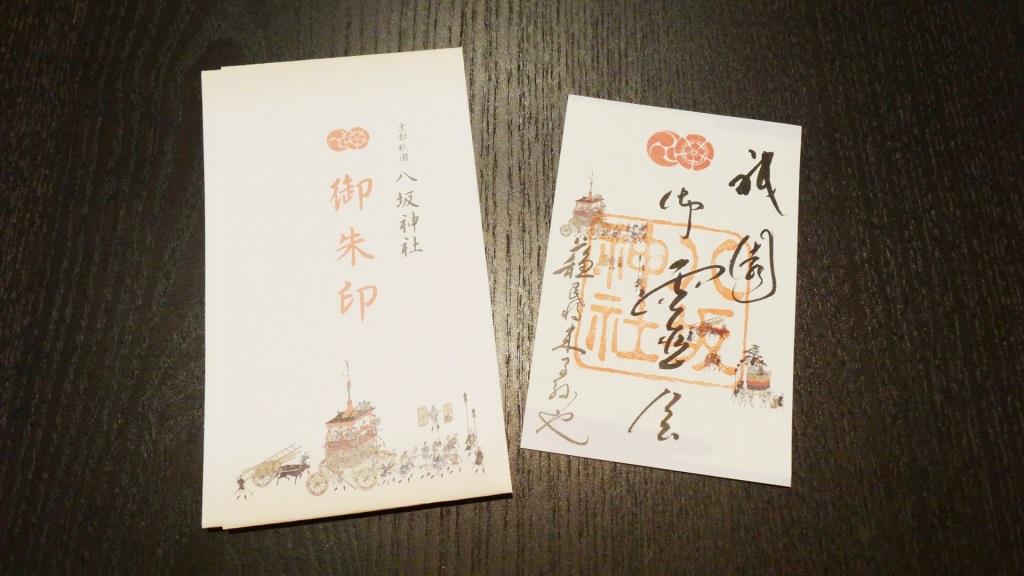 京都祇園 八坂神社
御朱印
祇園
御霊会
八坂神社
蘇民将来子孫也